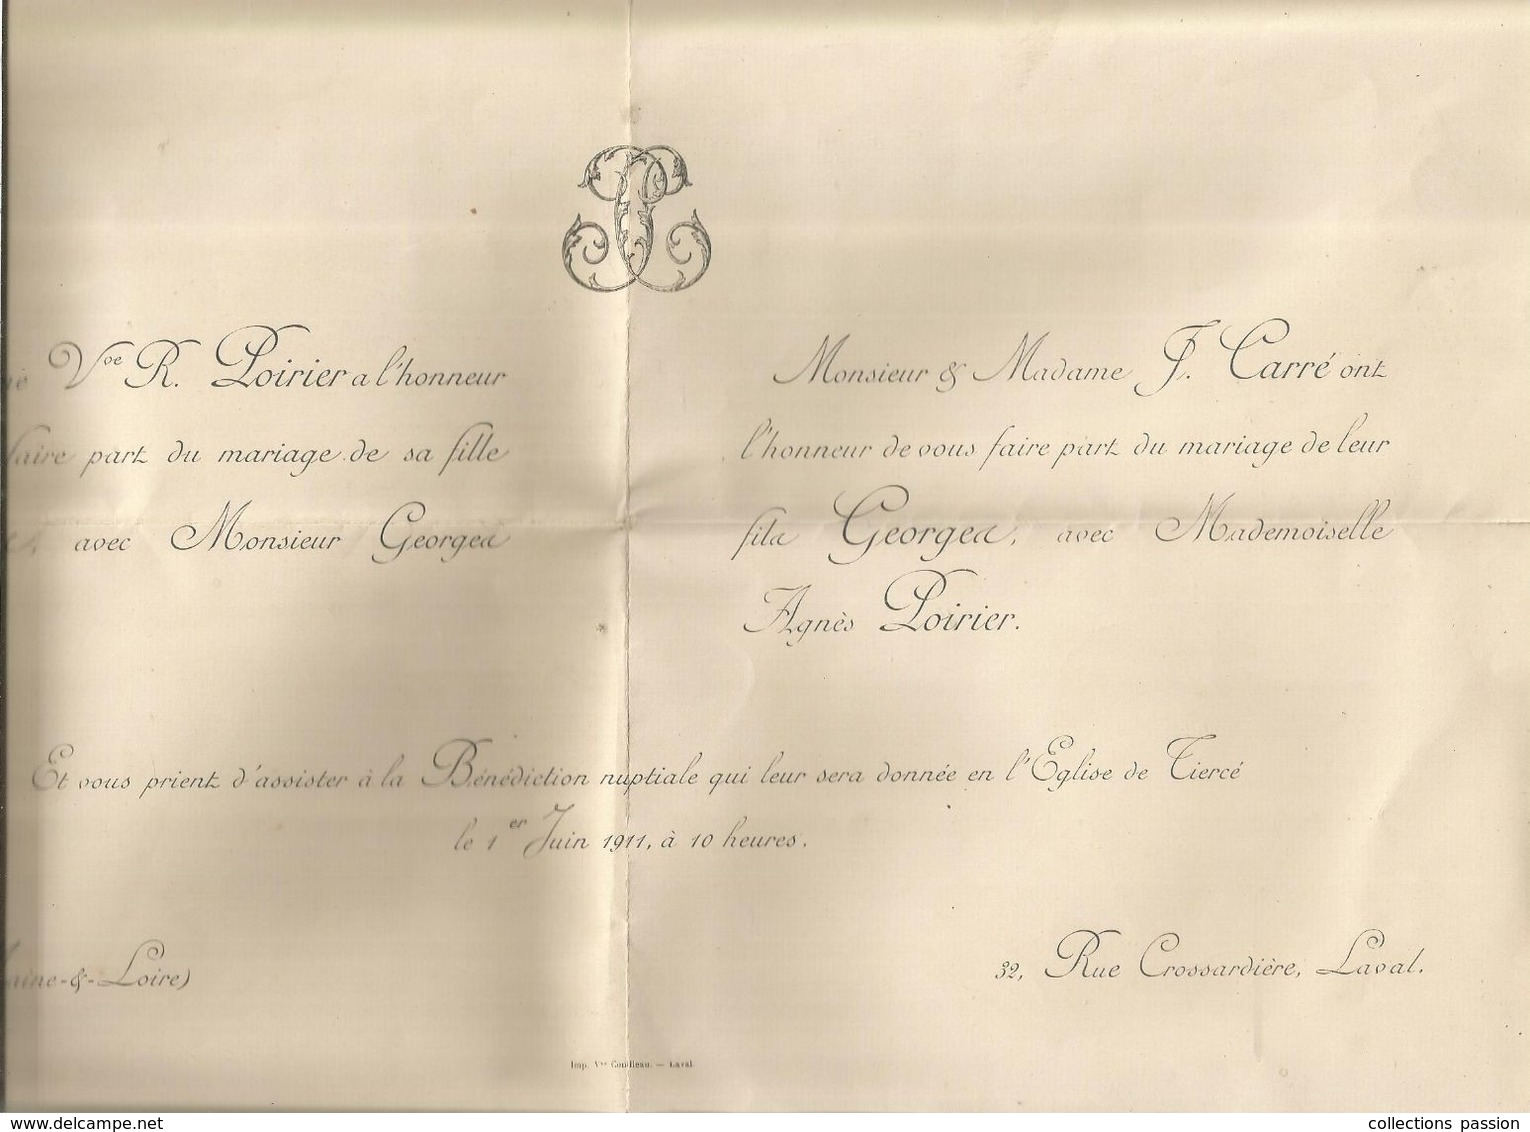 Vve R. Poirier a l'honneur
faire part du mariage de sa fille
avec Monsieur Georges
Monsieur & Madame F. Carré ont
l'honneur de vous faire part du mariage de leur
fils Georges, avec Mademoiselle
Agnès Poirier.
Et vous prient d'assister à la Bénédiction nuptiale qui leur sera donnée en l'Eglise de Tiercé
le 1er Juin 1911, à 10 heures.
aine-&-Loire)
32, Rue Crossardière, Laval.
Imp. Vve — Laval
www.delcampe.net
collections passion